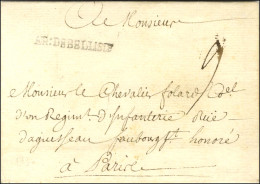 A Monsieur
AR: DEBELLISLE
9
Monsieur le Chevalier folard Col
d'un Regimt d'Infanterie Rüe
daguesseau faubourg St honoré
à Paris